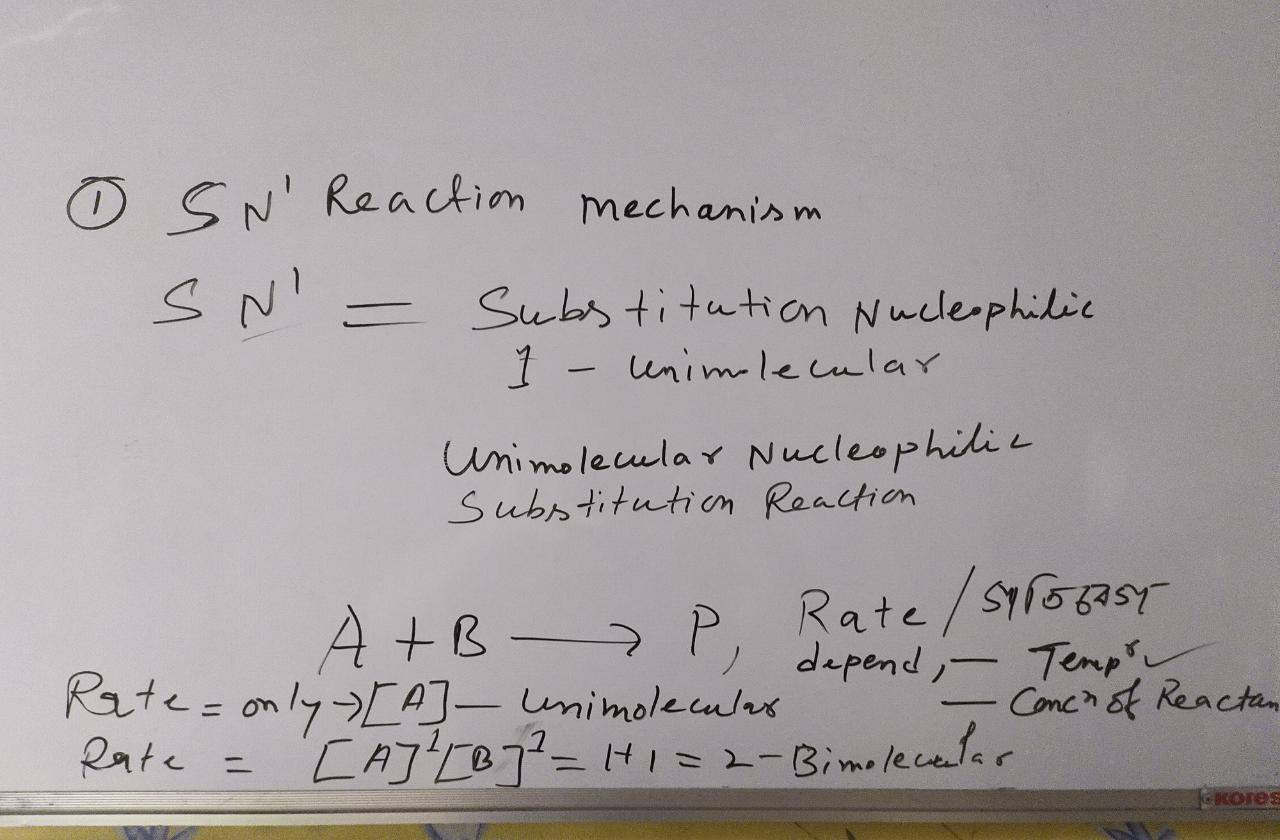 ① SN¹ Reaction mechanism
SN¹ = Substitution Nucleophilic
1 - Unimolecular
Unimolecular Nucleophilic
Substitution Reaction
A + B → P, Rate /
depend, - Tempr ✓
Rate = only → [A] - Unimolecular - Concn of Reactan
Rate = [A]¹[B]¹ = 1+1 = 2 - Bimolecular
KORES